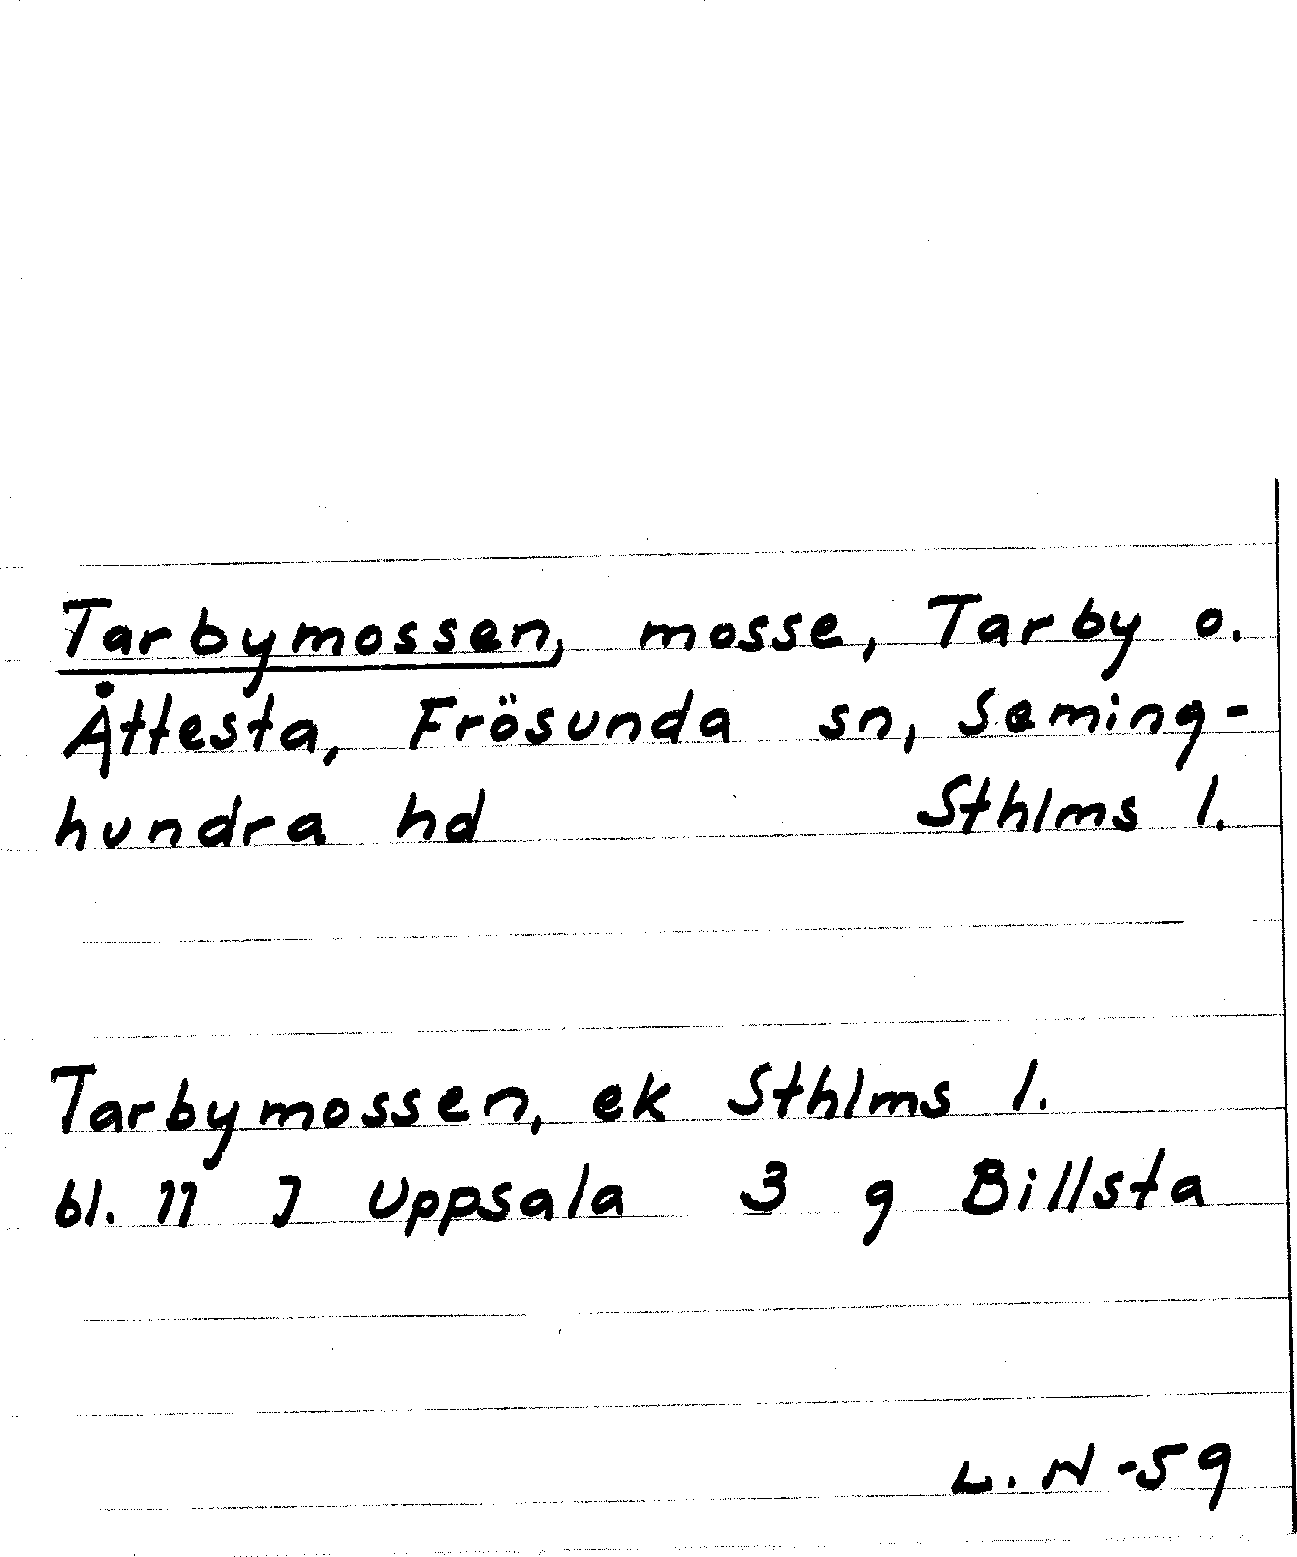 Tarbymossen, mosse, Tarby o.
Åttesta, Frösunda sn, Seming-
hundra hd Sthlms l.
Tarbymossen, ek Sthlms l.
bl. 11 J Uppsala 3 g Billsta
L. N -59